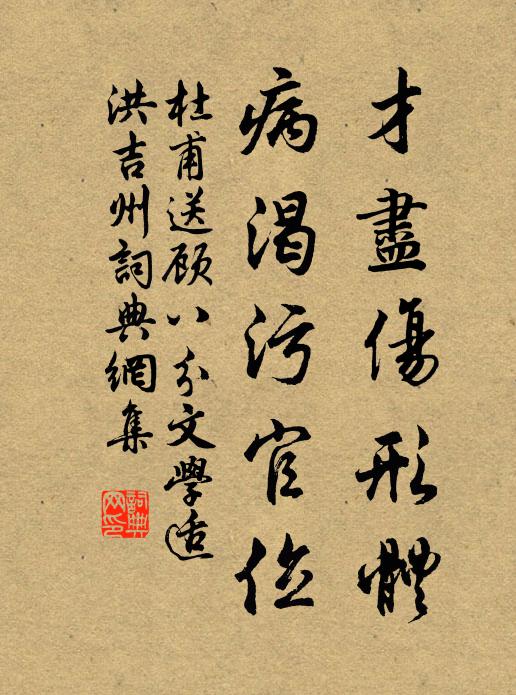 才盡傷形體
病渴污官位
杜甫送顾八分文學适
洪吉州詞典網集
詞典网印